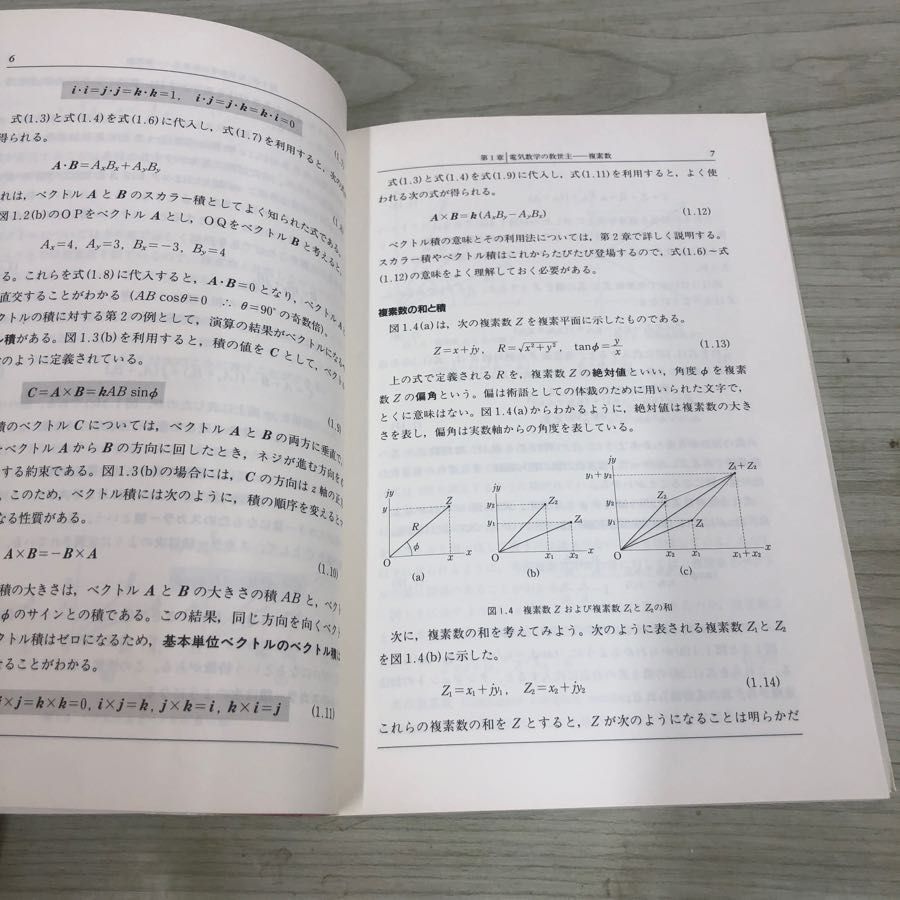 6
i・i=j・j=k・k=1, i・j=j・k=k・i=0
式(1.3)と式(1.4)を式(1.6)に代入し，式(1.7)を利用すると，次の
得られる。
A・B=AxBx+AyBy
れは，ベクトル A と B のスカラー積としてよく知られた式である。
図1.2(b)のOPをベクトル A とし，OQをベクトル B と考えると，
Ax=4, Ay=3, Bx=−3, By=4
る。これらを式(1.8)に代入すると，A・B=0となり，ベクトル A
直交することがわかる（AB cosθ=0 ∴ θ=90°の奇数倍）。
クトルの積に対する第2の例として，演算の結果がベクトルになる
ル積がある。図1.3(b)を利用すると，積の値を C として，ベクト
のように定義されている。
C=A×B=kAB sinφ
(1.9)
積のベクトル C については，ベクトル A と B の両方に垂直で，
ベクトル A から B の方向に回したとき，ネジが進む方向を
する約束である。図1.3(b)の場合には，C の方向は z 軸の正
，このため，ベクトル積には次のように，積の順序を変えると
なる性質がある。
A×B=−B×A
(1.10)
積の大きさは，ベクトル A と B の大きさの積 AB と，ベクト
φのサインとの積である。この結果，同じ方向を向くベク
クトル積はゼロになるため，基本単位ベクトルのベクトル積は
せることがわかる。
j×j=k×k=0, i×j=k, j×k=i, k×i=j (1.11)
第1章 電気数学の救世主──複素数 7
式(1.3)と式(1.4)を式(1.9)に代入し，式(1.11)を利用すると，よく使
われる次の式が得られる。
A×B=k(AxBy−AyBx) (1.12)
ベクトル積の意味とその利用法については，第2章で詳しく説明する。
スカラー積やベクトル積はこれからたびたび登場するので，式(1.6)〜式
(1.12)の意味をよく理解しておく必要がある。
複素数の和と積
図1.4(a)は，次の複素数 Z を複素平面に示したものである。
Z=x+jy, R=√x²+y², tanφ=y/x (1.13)
上の式で定義される R を，複素数 Z の絶対値といい，角度 φ を複素
数 Z の偏角という。偏は術語としての体裁のために用いられた文字で，
とくに意味はない。図1.4(a)からわかるように，絶対値は複素数の大き
さを表し，偏角は実数軸からの角度を表している。
jy y Z R φ O x x
(a)
jy y2 Z2 y1 Z1 O x2 x1 x
(b)
jy y1+y2 Z1+Z2 y2 Z2 y1 Z1 O x2 x1 x1+x2 x
(c)
図1.4 複素数 Z および複素数 Z1と Z2の和
次に，複素数の和を考えてみよう。次のように表される複素数 Z1と Z2
を図1.4(b)に示した。
Z1=x1+jy1, Z2=x2+jy2 (1.14)
これらの複素数の和を Z とすると，Z が次のようになることは明らかだ